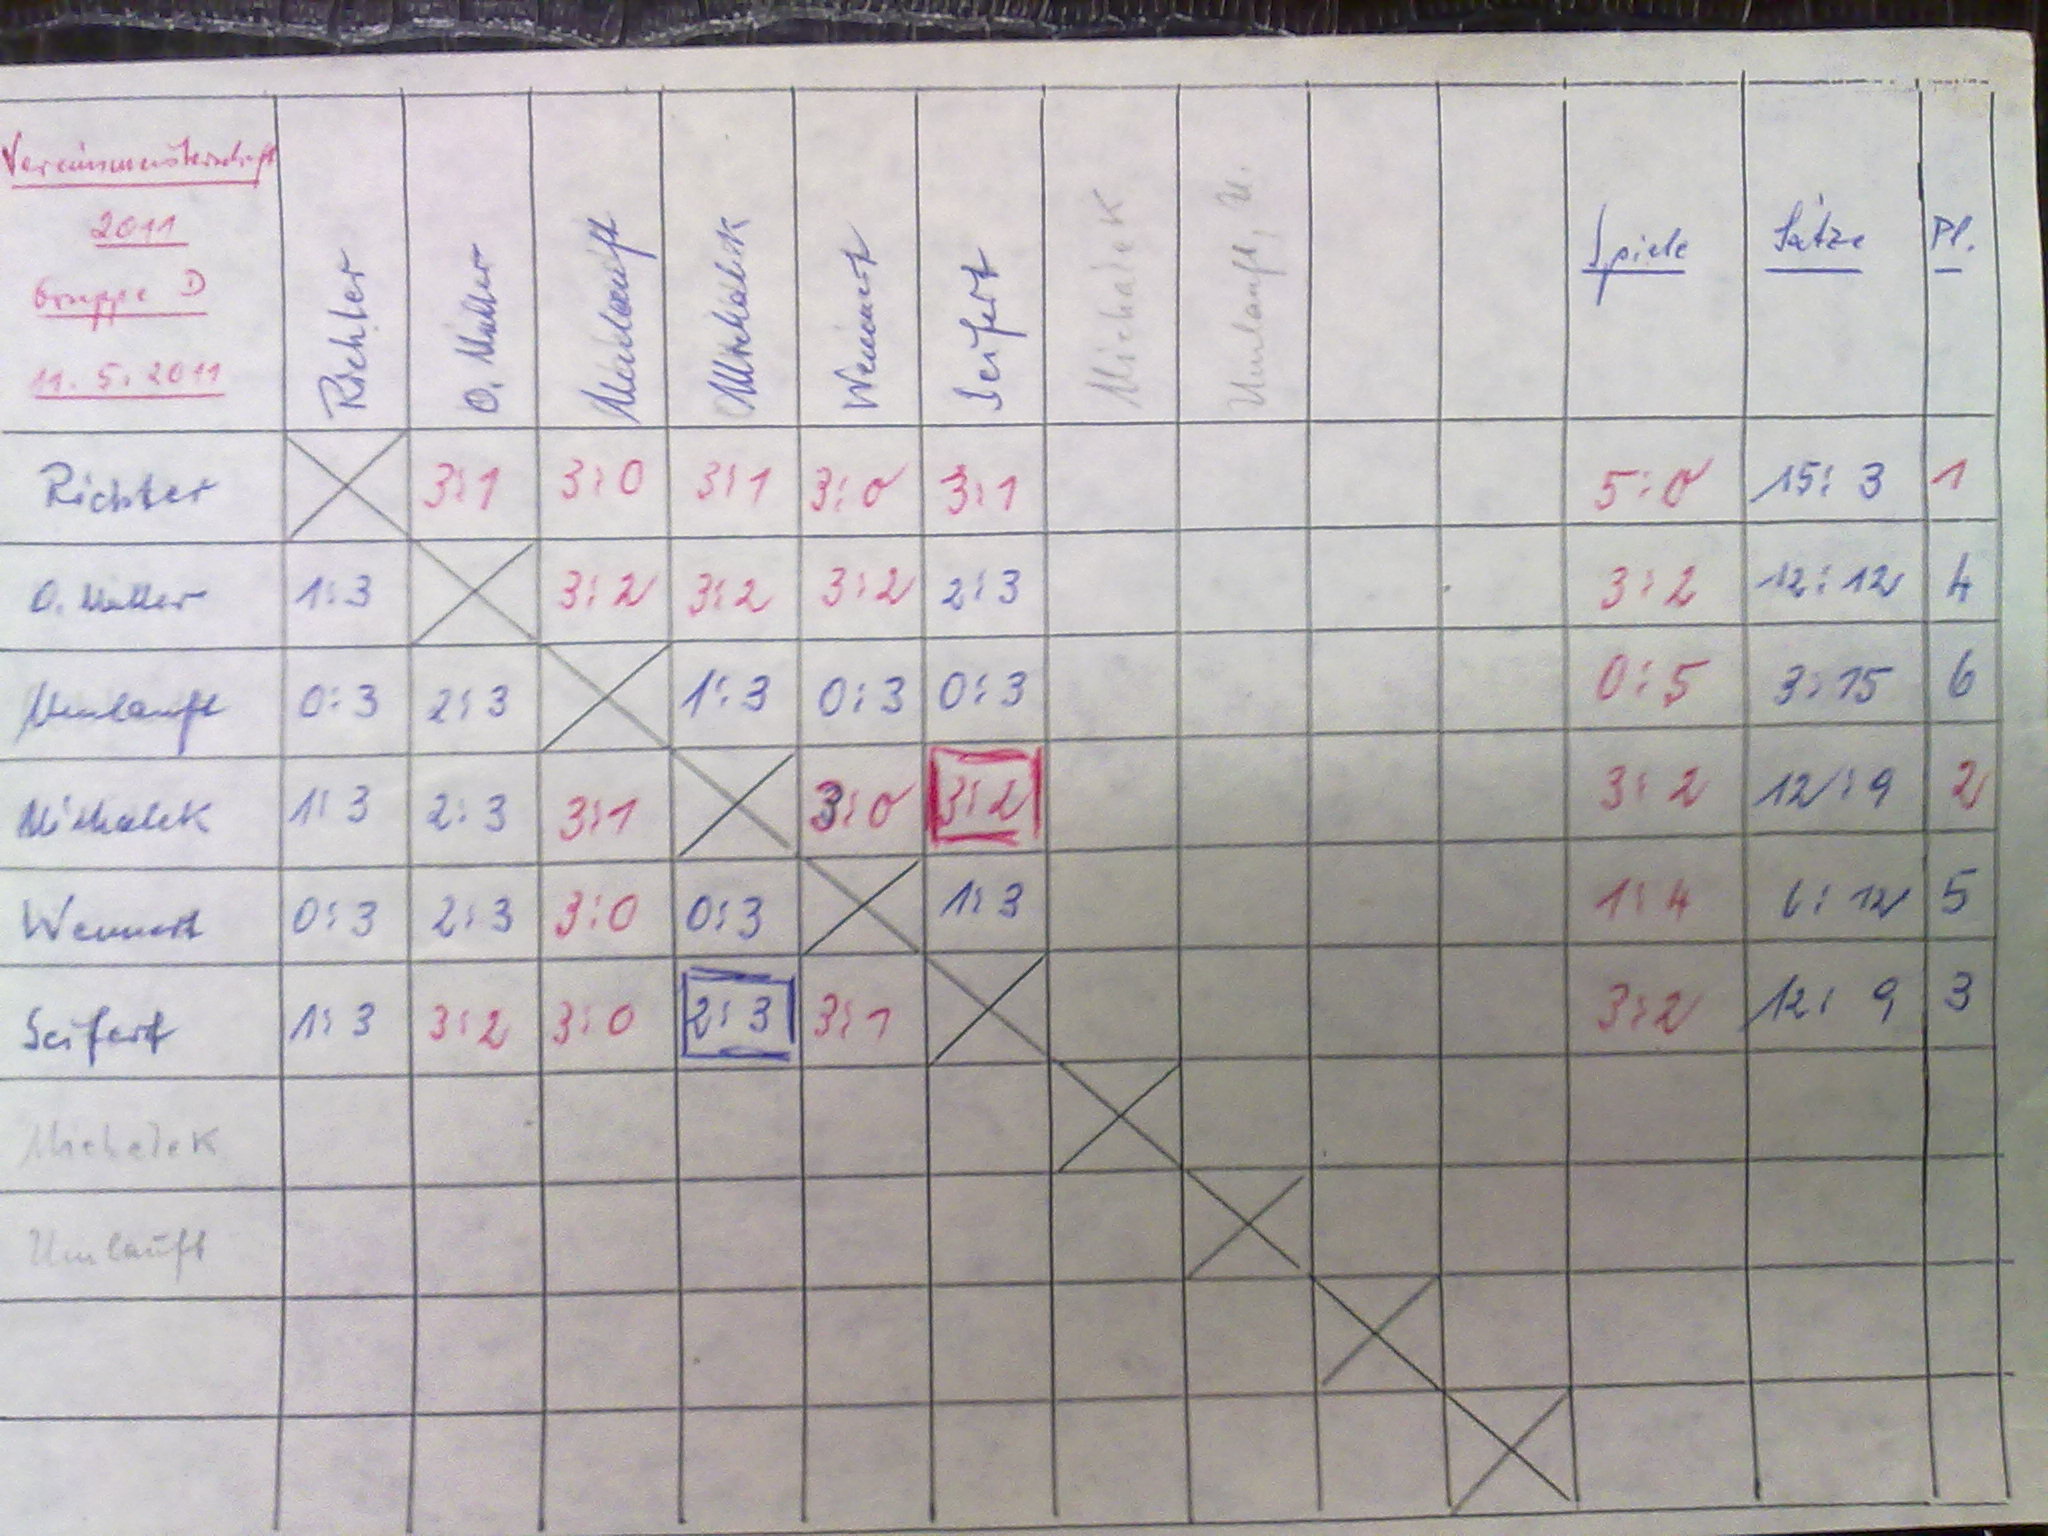 Vereinsmeisterschaft
2011
Gruppe D
11.5.2011
Richter O. Müller Umlauft Michalek Wennert Seifert Michalek Umlauft, U. Spiele Sätze Pl.
Richter 3:1 3:0 3:1 3:0 3:1 5:0 15:3 1
O. Müller 1:3 3:2 3:2 3:2 2:3 3:2 12:12 4
Umlauft 0:3 2:3 1:3 0:3 0:3 0:5 3:15 6
Michalek 1:3 2:3 3:1 3:0 3:2 3:2 12:9 2
Wennert 0:3 2:3 3:0 0:3 1:3 1:4 6:12 5
Seifert 1:3 3:2 3:0 2:3 3:1 3:2 12:9 3
Michalek
Umlauft